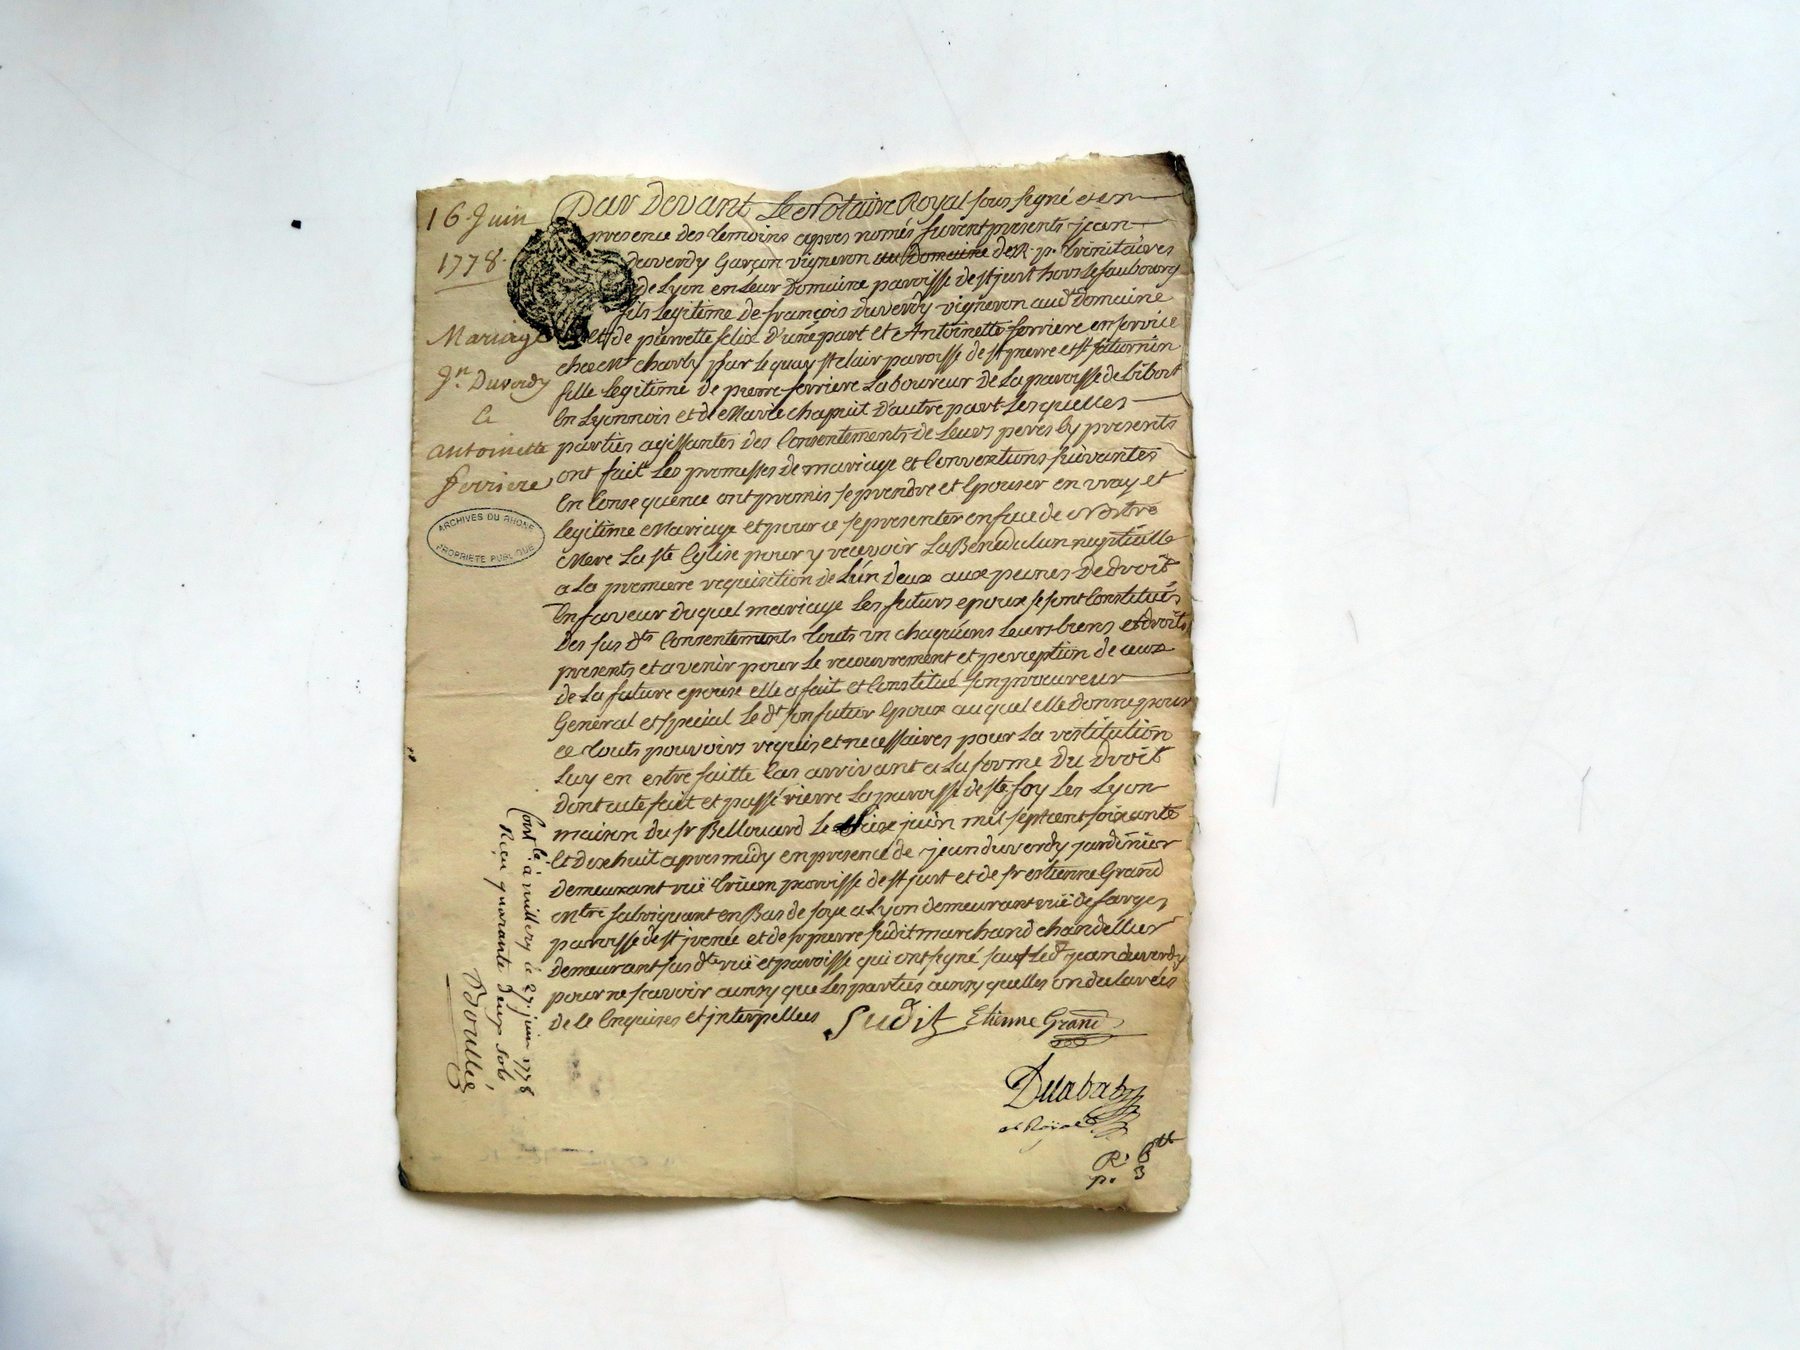 16 Juin
1778.
Mariage
Jn. Duverdy
a
antoinette
ferriere
ARCHIVES DU RHONE
PROPRIETE PUBLIQUE
Par Devant Le Notaire Royal sous signé et en
presence des temoins apres només furent presents jean
duverdy Garçon vigneron au Domaine de R. p. trinitaires
de Lyon en Leur Domaine paroisse de st just hors Le faubourg
fils Legitime de françois duverdy vigneron aud. Domaine
et de pierrette felix d'une part et Antoinette ferriere en service
chex Mr charly sur Le quay st clair paroisse de st pierre et st saturnin
fille Legitime de pierre ferriere Laboureur de La paroisse de
en Lyonnois et de Marie chapuit d'autre part Les quelles
parties agissantes des Consentements de Leurs peres ey presents
ont fait Les promesses de mariage et Conventions suivantes
En Consequence ont promis se prendre et Epouser en vray et
legitime Mariage et pour ce se presenter en face de Nostre
Mere La ste Eglise pour y recevoir La Benediction nuptialle
a La premiere requisition de L'un deux aux peines de droit
En faveur duquel mariage Les futurs epoux se sont Constitués
des sus dts Consentements touts un chaquuns Leurs biens et droits
presents et a venir pour Le recouvrement et perception de ceux
de La future epouse elle a fait et Constitué son procureur
General et special Le dt son futur Epoux auquel elle donne pour
ce touts pouvoirs requis et necessaires pour La restitution
Luy en estre faitte Cas arrivant a La forme du droit
dont acte fait et passé rierre La paroisse de ste foy Les Lyon
maison du sr Bellouard Le seize juin mil sept cent soixante
et dixhuit apres midy en presence de jean duverdy jardinier
demeurant ruë trion paroisse de st just et de sr estienne Grand
mtre fabriquant en Bas de soye a Lyon demeurant ruë de farges
paroisse de st irenée et de sr pierre sudit marchand chandellier
demeurant sus dte ruë et paroisse qui ont signé sauf Le dt jean duverdy
pour ne scavoir ainsy que Les parties ainsy quelles ont declarées
de Ce Enquises et interpellees Sudit Etienne Grand
Delabaty
nre Royal
R. 6tt
p. 3
Conlé. à millery le 27. juin 1778
Reçu quarante deux sols